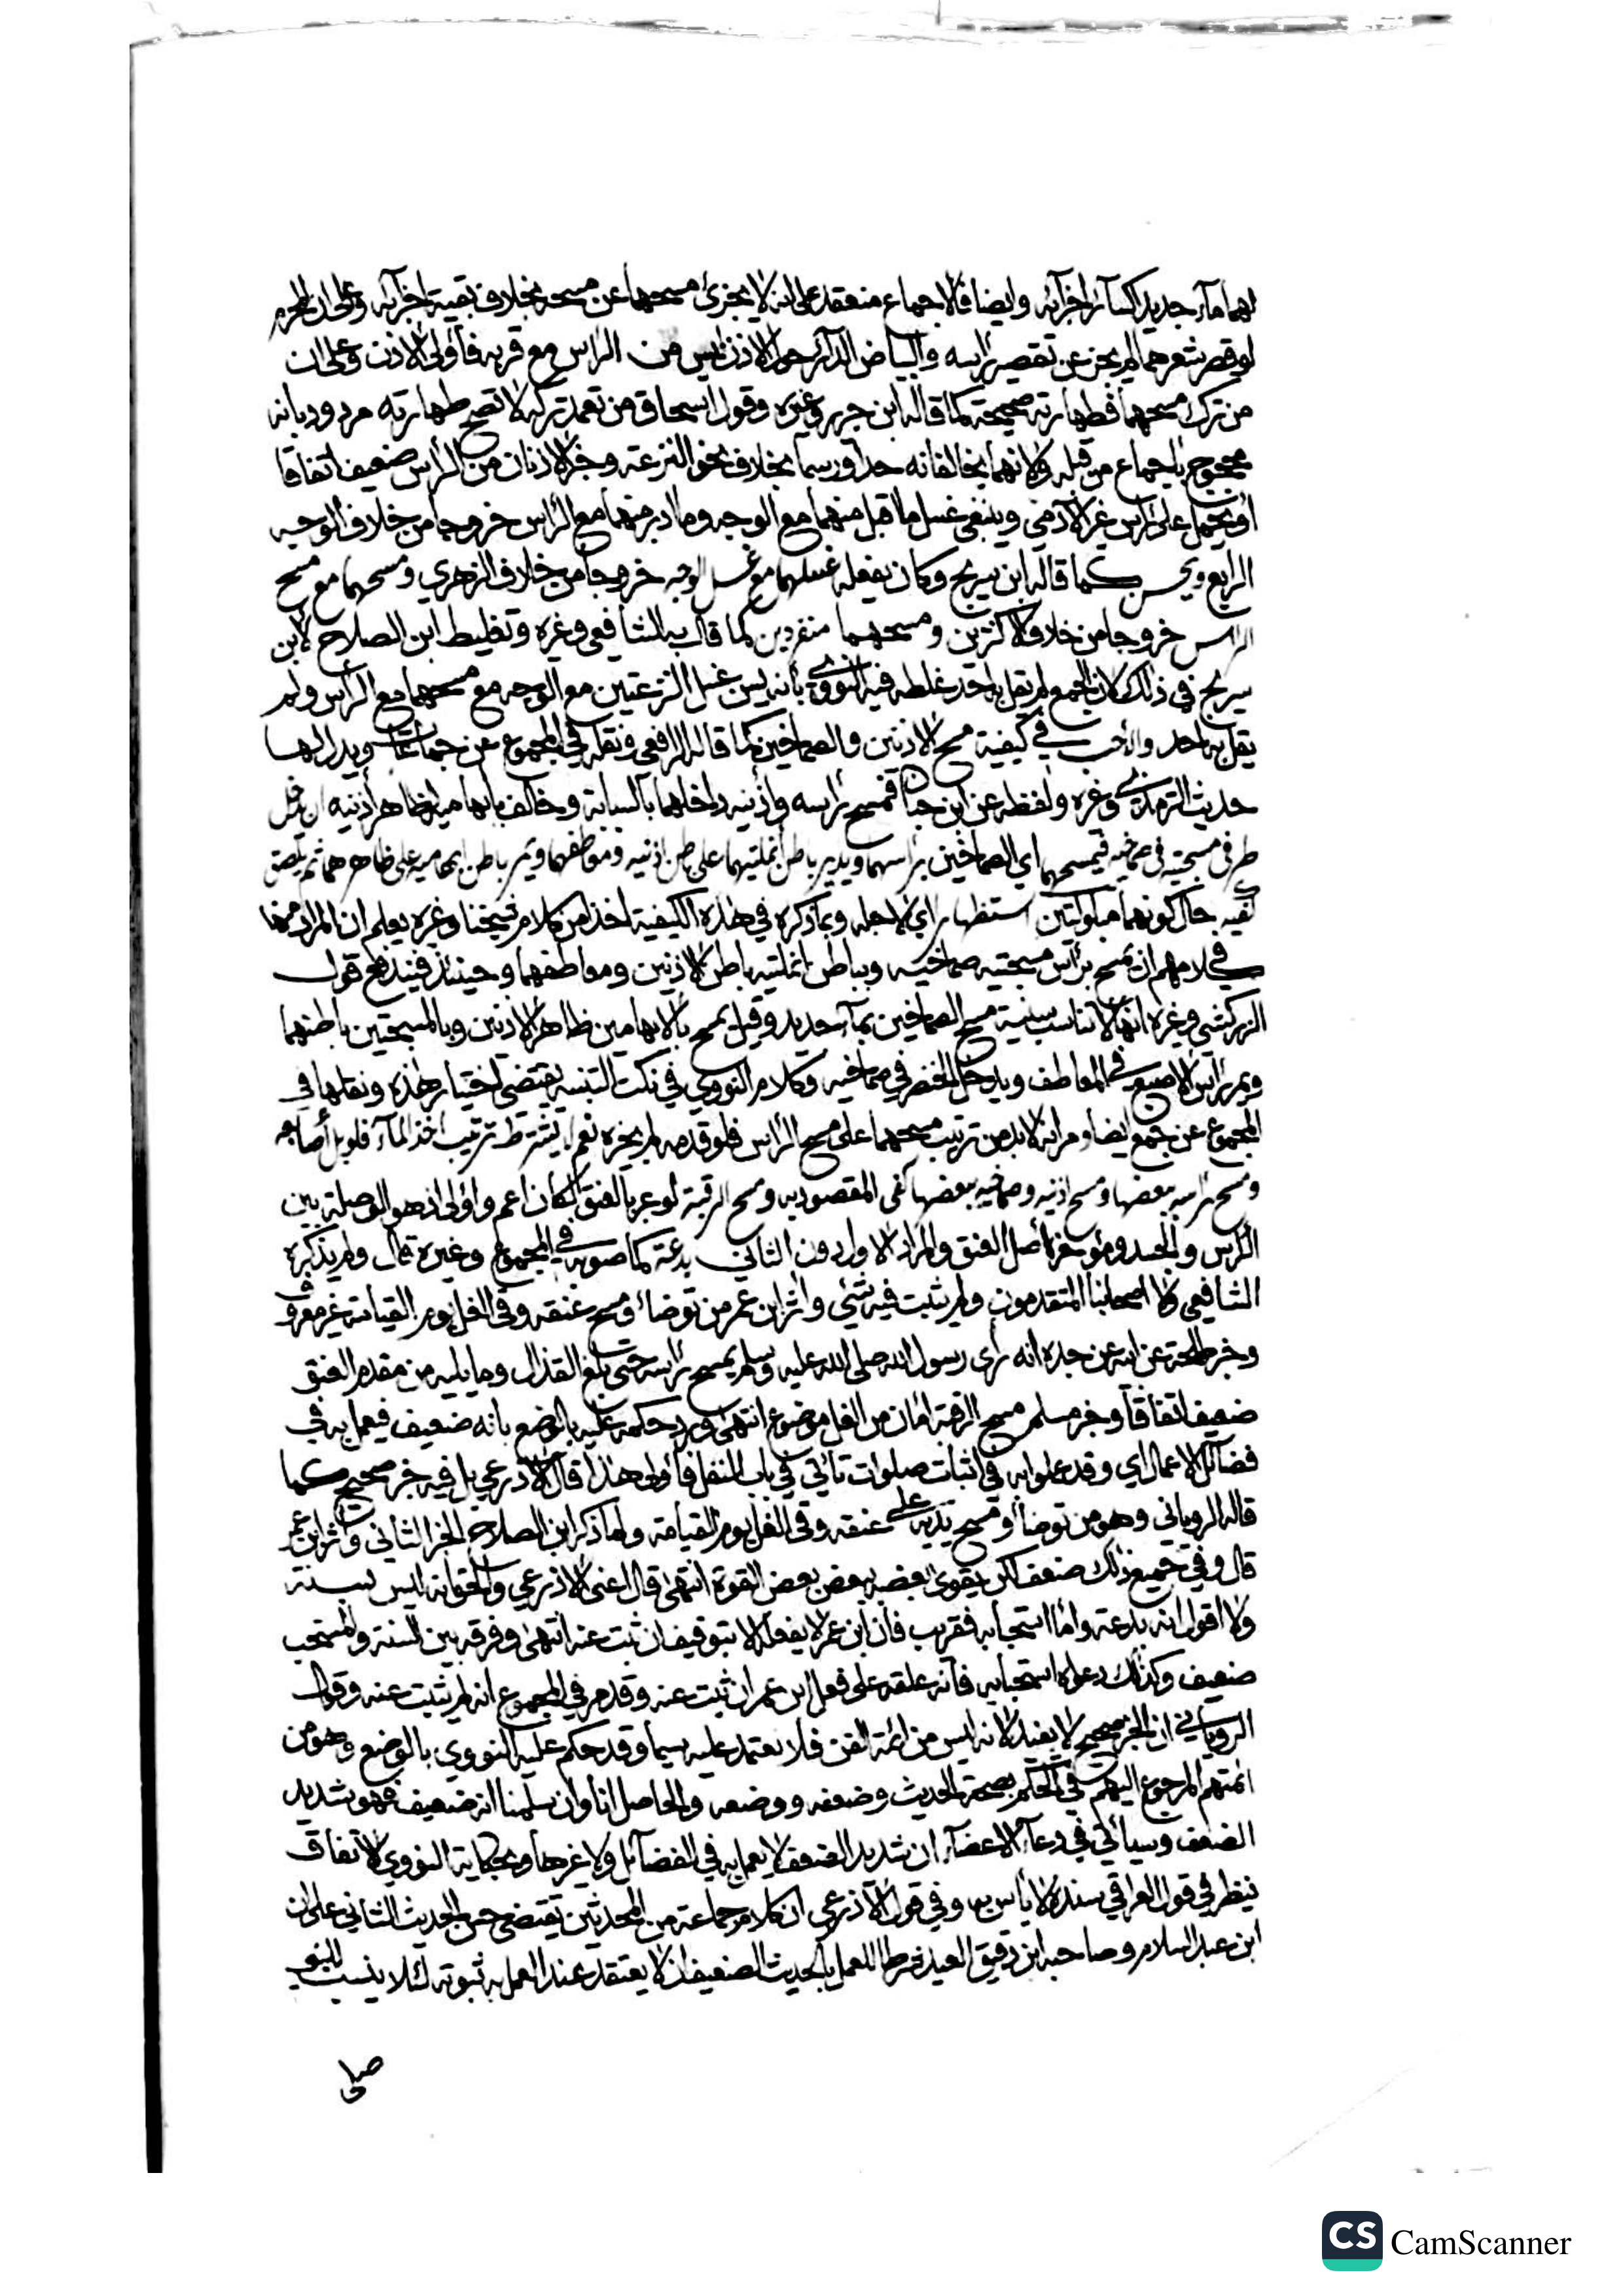 لهما ماء جديد كسائر اجزآئه وايضا فالاجماع منعقد على انه لا يجزئ مسحهما عن مسحه بخلاف بقية اجزآئه وعلى ان المحرم
لو قصر شعرهما لم يجز عن تقصير راسه والبياض الدآئر حول الاذن ليس من الراس مع قربه فأولى الاذن وعلى ان
من ترك مسحهما فطهارته صحيحة كما قاله ابن جرير وغيره وقول اسحاق من تعمد تركه لا تصح طهارته مردود بانه
محجوج باجماع من قبله ولانهما يخالفانه حدا ورسما بخلاف نحو النزعة وخبر الاذنان من الرأس ضعيف اتفاقا
او يحمل على غير الآدمي وينبغي غسل ما اقبل منهما مع الوجه وما ادبر منهما مع الراس خروجا من خلاف الوجه
الرابع ويحسن كما قاله ابن سريج وكان يفعله غسلهما مع غسل الوجه خروجا من خلاف الزهري ومسحهما مع مسح
الراس خروجا من خلاف الاكثرين ومسحهما منفردين كما قال به الشافعي وغيره وتغليط ابن الصلاح لابن
سريج في ذلك لان الجمع لم يقل به احد غلطه فيه النووي بأنه يسن غسل النزعتين مع الوجه مع مسحهما مع الرأس ولم
يقل به احد والأحب في كيفية مسح الاذنين والصماخين كما قاله الرافعي ونقله في المجموع عن جماعات ويدل لها
حديث الترمذي وغيره ولفظه عن ابن حبان فمسح براسه واذنيه داخلهما بالسبابة وخالف بابهاميه لظاهر أذنيه ان يدخل
طرفي مسبحتيه في صماخيه فيمسحهما اي الصماخين براسهما ويدير باطن انملتيهما على باطن اذنيه ومعاطفهما ويمر باطن ابهاميه على ظاهرهما ثم يلصق
كفيه حال كونهما مبلولتين استظهارا اي لاجله وبما ذكره في هذه الكيفية اخذا من كلام شيخنا وغيره يعلم ان المراد منها
في كلامهم ان يمسح برأس مسبحتيه صماخيه وبباطن انملتيه باطن الاذنين ومعاطفهما وحينئذ فيندفع قول
الزركشي وغيره انها لا تناسب سنية مسح الصماخين بمآء جديد وقيل يمسح بالابهامين ظاهر الاذنين وبالمسبحتين باطنهما
ويمر راس الاصبع في المعاطف ويدخل الخنصر في صماخيه وكلام النووي في نكت التنبيه يقتضي اختيار هذه ونقلها في
المجموع عن جمع ايضا ومر انه لابد من ترتيب مسحهما على مسح الراس فلو قدمه لم يجزه نعم لا يشترط ترتيب اخذ المآء فلو بل أصابعه
ومسح راسه ببعضها ومسح اذنيه وصماخيه ببعضها كفى المقصود به ومسح الرقبة لو عبر بالعنق لكان اعم واولى اذ هو الوصلة بين
الرأس والجسد ومؤخره أصل العنق والمراد الاول دون الثاني بدعة كما صوبه في المجموع وغيره قال ولم يذكره
الشافعي ولا اصحابنا المتقدمون ولم يثبت فيه شئ واثر ابن عمر من توضا ومسح عنقه وقي الغل يوم القيامة غير معروف
وخبر طلحة عن ابيه عن جده انه رأى رسول الله صلى الله عليه وسلم يمسح راسه حتى بلغ القذال وما يليه من مقدم العنق
ضعيف اتفاقا وخبر مسلم مسح الرقبة امان من الغل موضوع انتهى ورد حكمه عليه بالوضع بأنه ضعيف فيعمل به في
فضائل الاعمال اي وقد عملوا به في اثبات صلوات تأتي في باب النفل فأولى هذا قال الاذرعي بل فيه خبر صحيح كما
قاله الروياني وهو من توضأ ومسح يديه على عنقه وقي الغل يوم القيامة ولما ذكر ابن الصلاح الخبر الثاني واثر ابن عمر
قال وفي جميع ذلك ضعف لكن يقوى بعضه ببعض بعض القوة انتهى قال اعنى الاذرعي والحق انه ليس بسنة
ولا اقول انه بدعة واما استحبابه فقريب فان ابن عمر لا يفعله الا بتوقيف ان ثبت عنه انتهى وفرقه بين السنة والمستحب
ضعيف وكذلك دعواه استحبابه فانه علقه على فعل ابن عمر ان ثبت عنه وقد مر في المجموع انه لم يثبت عنه وقول
الروياني ان الخبر صحيح لا يفيد لانه ليس من ائمة الفن فلا يعتمد عليه سيما وقد حكم عليه النووي بالوضع وهو من
ائمتهم المرجوع اليهم في الحكم بصحة الحديث وضعفه ووضعه والحاصل انا وان سلمنا انه ضعيف فهو شديد
الضعف وسيأتي في دعآء الاعضآء ان شديد الضعف لا يعمل به في الفضآئل ولا غيرها وبحكاية النووي الاتفاق
ينظر في قول العراقي سنده لا بأس به وفي قول الاذرعي ان كلام جماعة من المحدثين يقتضي حسن الحديث الثاني على ان
ابن عبد السلام وصاحبه ابن دقيق العيد شرطا للعمل بالحديث الضعيف ان لا يعتقد عند العمل به ثبوته لئلا ينسب للنبي
صلى
CS CamScanner